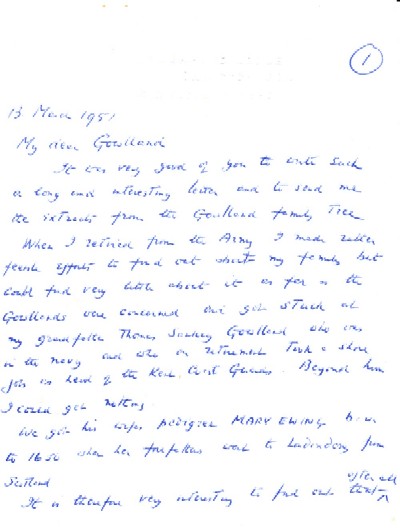 1
13 March 1951
My dear Gowlland
It was very good of you to write such
a long and interesting letter and to send me
the extracts from the Gowlland family Tree
When I retired from the Army I made rather
feeble efforts to find out about my family but
could find very little about it as far as the
Gowllands were concerned and got stuck at
my grandfather Thomas Sankey Gowlland who was
in the Navy and who on retirement took a shore
job as head of the Kent Coast Guards. Beyond him
I could get nothing.
We got his wifes pedigree MARY EWING
to 1650 when her forefathers went to Londonderry from
Scotland
It is therefore very interesting to find out after all that